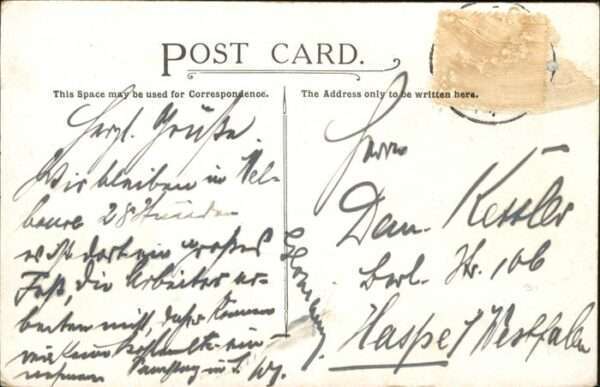 POST CARD.
This Space may be used for Correspondence.
The Address only to be written here.
Herzl. Grüße.
Wir bleiben in Mel-
bourne 2 Stunden
es ist dort ein großes
Fest, die Arbeiter ar-
beiten nicht, daher können
wir keine Kohlen ein-
nehmen
Herrn
Dan. Kessler
Berl. Str. 106
Haspe / Westfalen